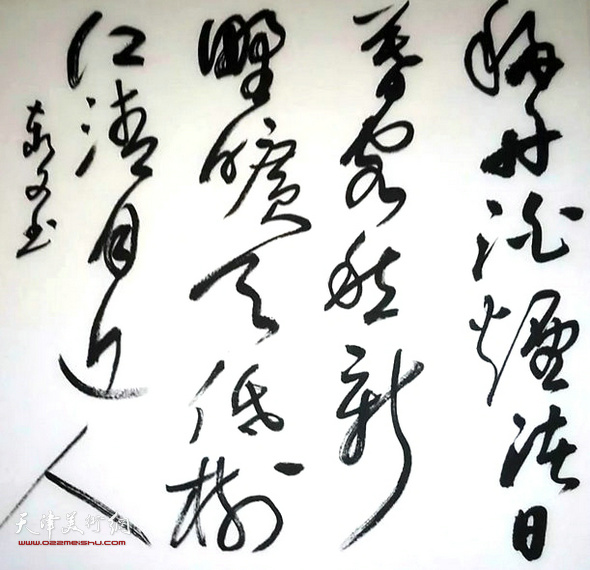 移舟泊煙渚日
暮客愁新
野曠天低樹
江清月近人
文书
天津美术网
www.022meishu.com